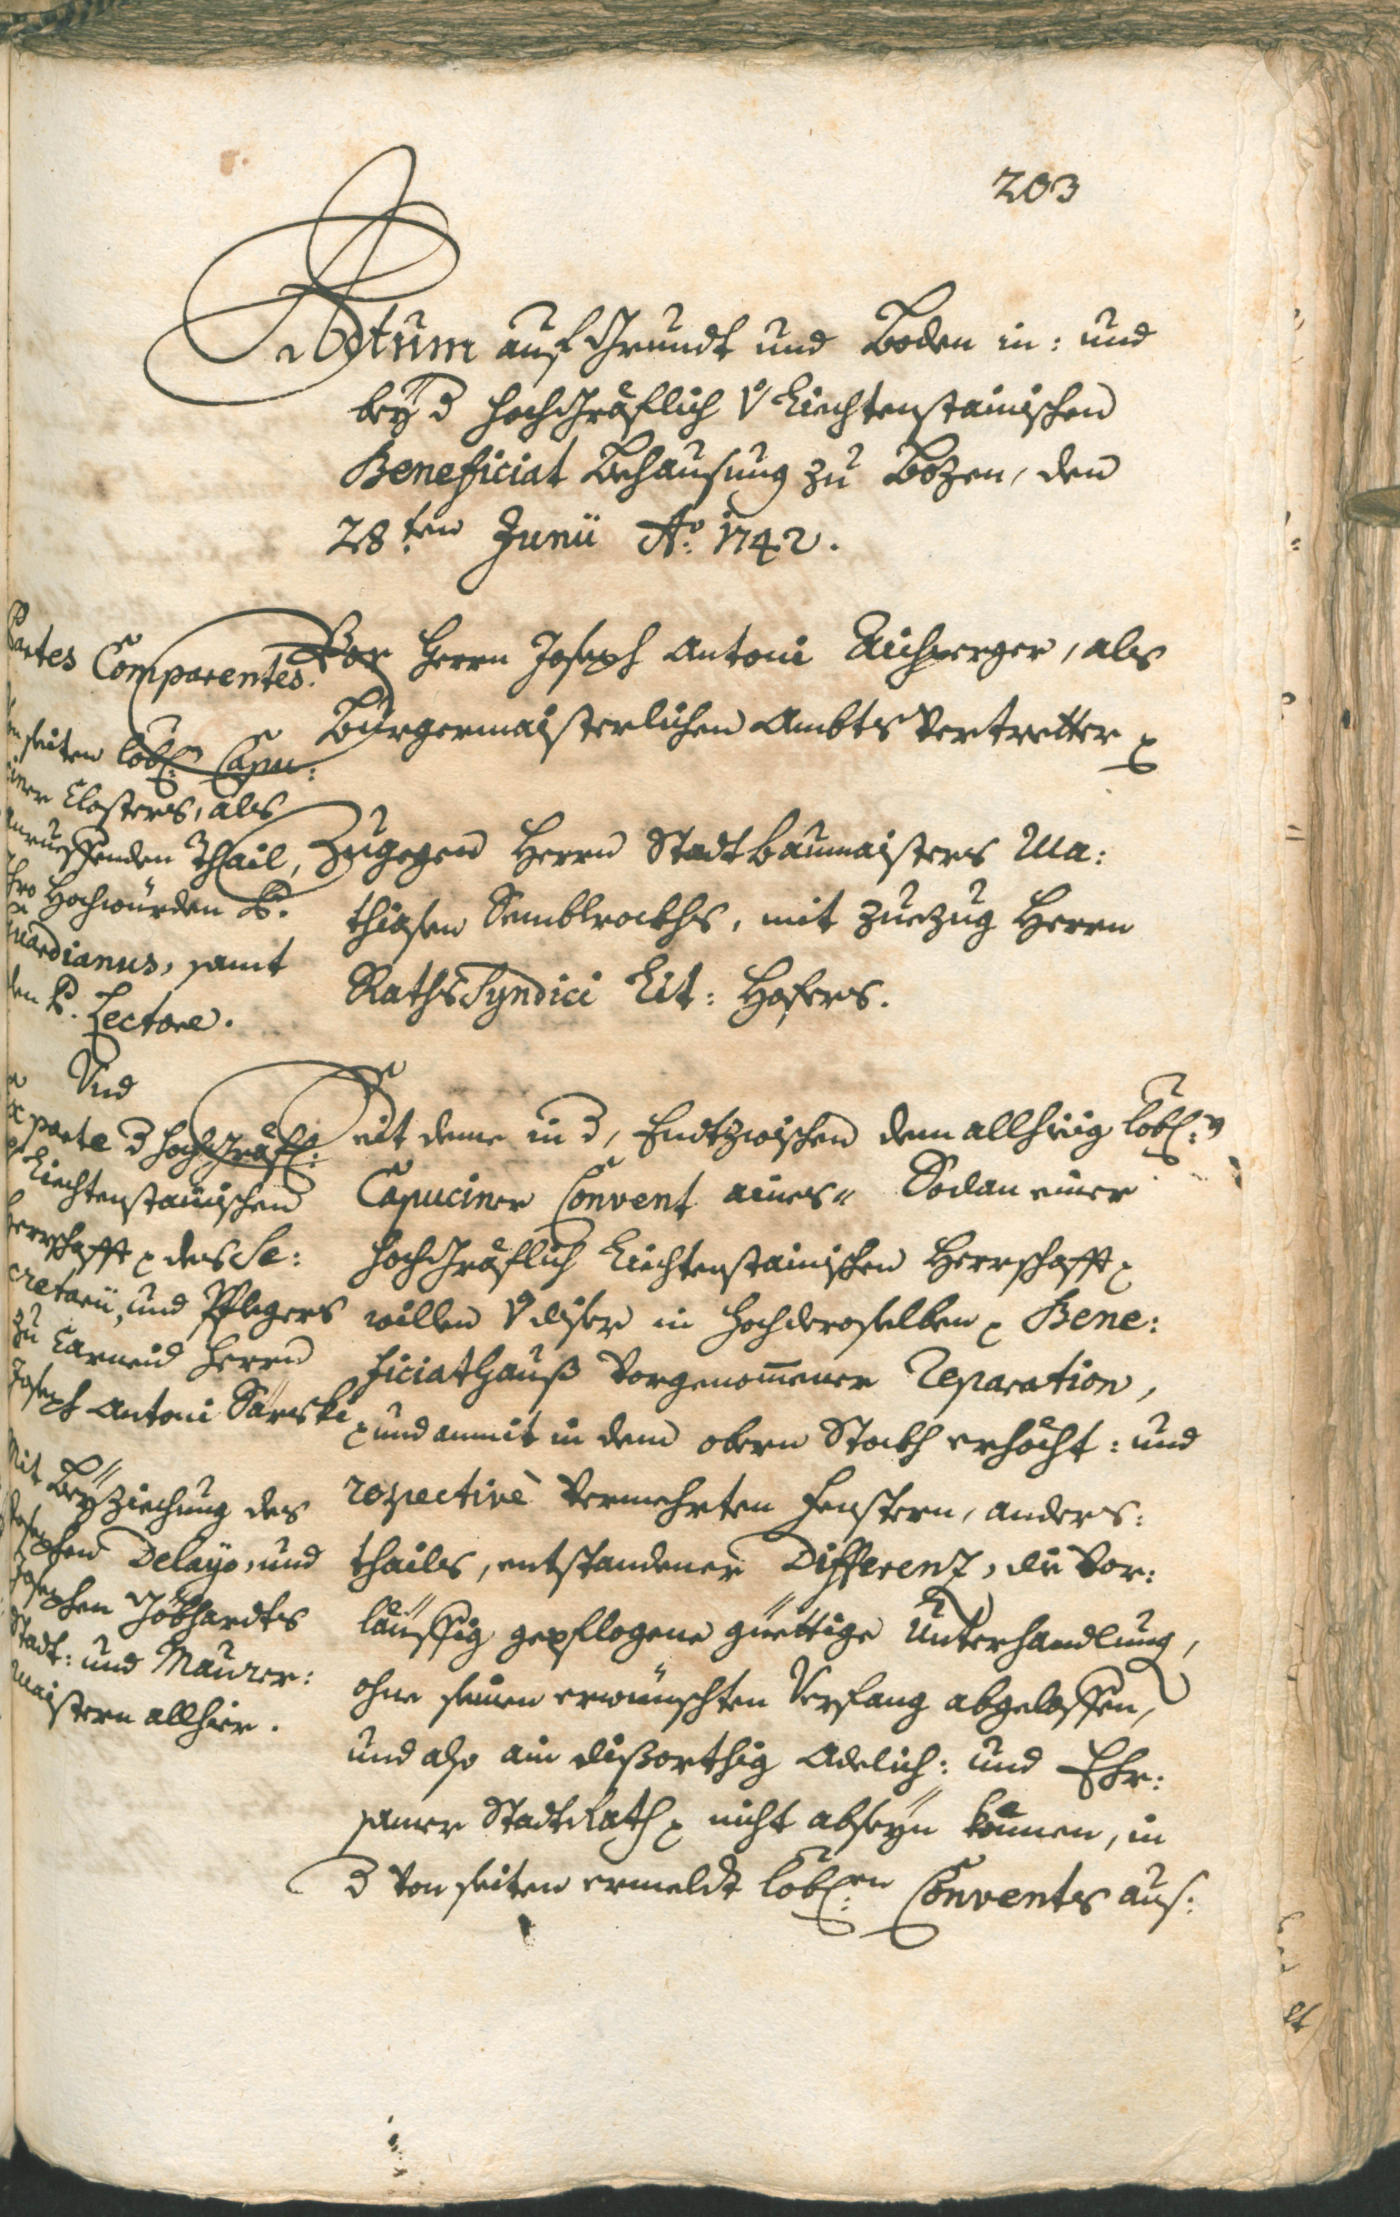 203
Actum auf Grundt und Boden in: und
bey d hochGräflich v Liechtenstainischen
Beneficiat Behausung zu Bozen, den
28.ten Junii Ao: 1742.
Partes Comparentes.
Von seiten löbl: Capu:
ciner Closters, als
anrueffenden Thail,
Ihro Hochwürden P.
Guardianus, samt
den P. Lectore.
Und
Ex parte d hochGräfl:
v Liechtenstainischen
Herrschafft des Se:
cretarii, und Pflegers
zu Carneid Herrn
Joseph Antoni
Mit Beyziechung des
Josephen Delayo, und
Josephen Göbhardts
Stadt: und Maurer:
maistern allhier.
Vor Herrn Joseph Antoni Aichperger, als
Burgermaisterlichen Ambts Vertretter
Zugegen Herrn Stadtbaumaisters Ma:
thiasen Semblrockhs, mit Zuezug Herrn
Raths Syndici Lit: Hofers.
Mit deme in d, Endtzwischen dem allhieig löbl:n
Capuciner Convent aines" Sodan einer
hochGräflich Liechtenstainischen Herrschafft
willen v diser in hochderoselben Bene:
ficiathauß Vorgenommener Reparation,
und anmit in dem obern Stockh erhöcht: und
respectivè Vermehrten Fenstern, anders:
thails, entstandener Differenz, die Vor:
läuffig gepflogene güettige Unterhandlung,
ohne seinen erwünschten Verfang abgeloffen,
und also ain dißorthig Adelich: und Ehr:
samer StadtRath nicht abseyn können, in
d Von seiten ermeldt löbl:en Convents aus: